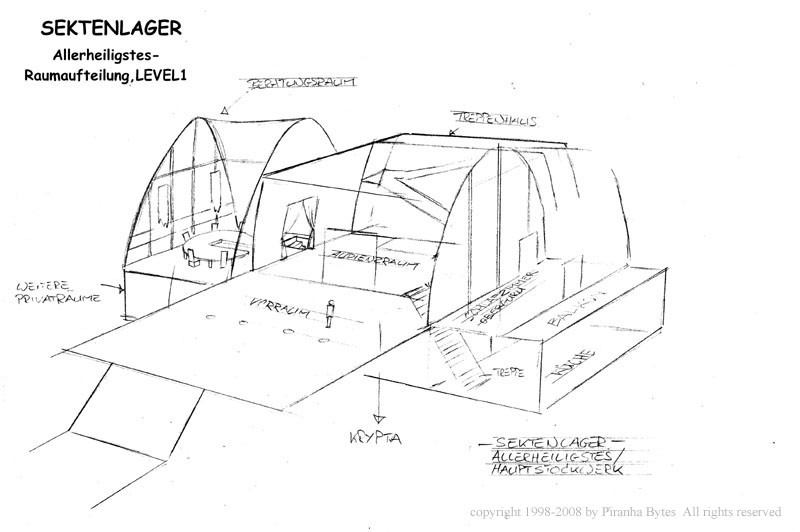 SEKTENLAGER
Allerheiligstes-
Raumaufteilung,LEVEL1
BERATUNGSRAUM
TREPPENHAUS
AUDIENZRAUM
WEITERE
PRIVATRÄUME
VORRAUM
SCHLAFZIMMER
BALKON
TREPPE
KÜCHE
KRYPTA
- SEKTENLAGER -
ALLERHEILIGSTES/
HAUPTSTOCKWERK
copyright 1998-2008 by Piranha Bytes All rights reserved